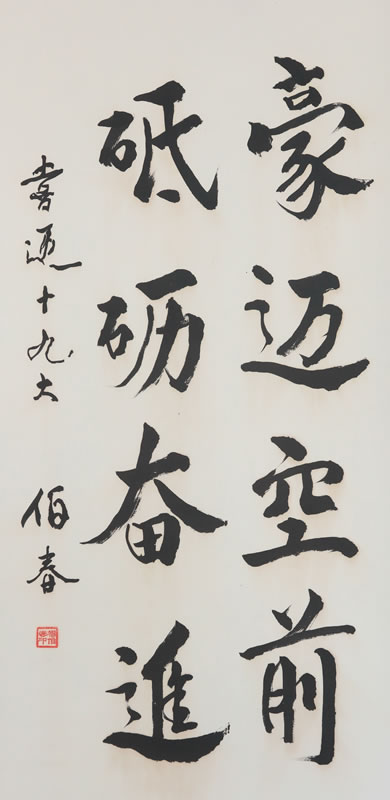 豪迈空前
砥砺奋進
喜迎十九大 伯春